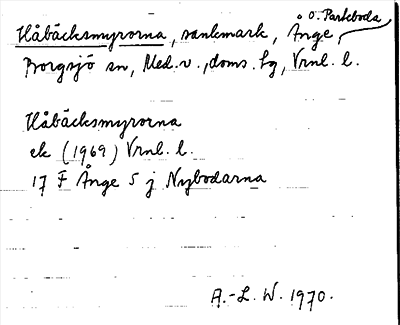 Håbäcksmyrorna, sankmark, Ånge, o. Parteboda
Borgsjö sn, Med. v., doms. lg, Vrnl. l.
Håbäcksmyrorna
ek (1969) Vrnl. l.
17 F Ånge 5 j Nybodarna
A.-L. W. 1970.